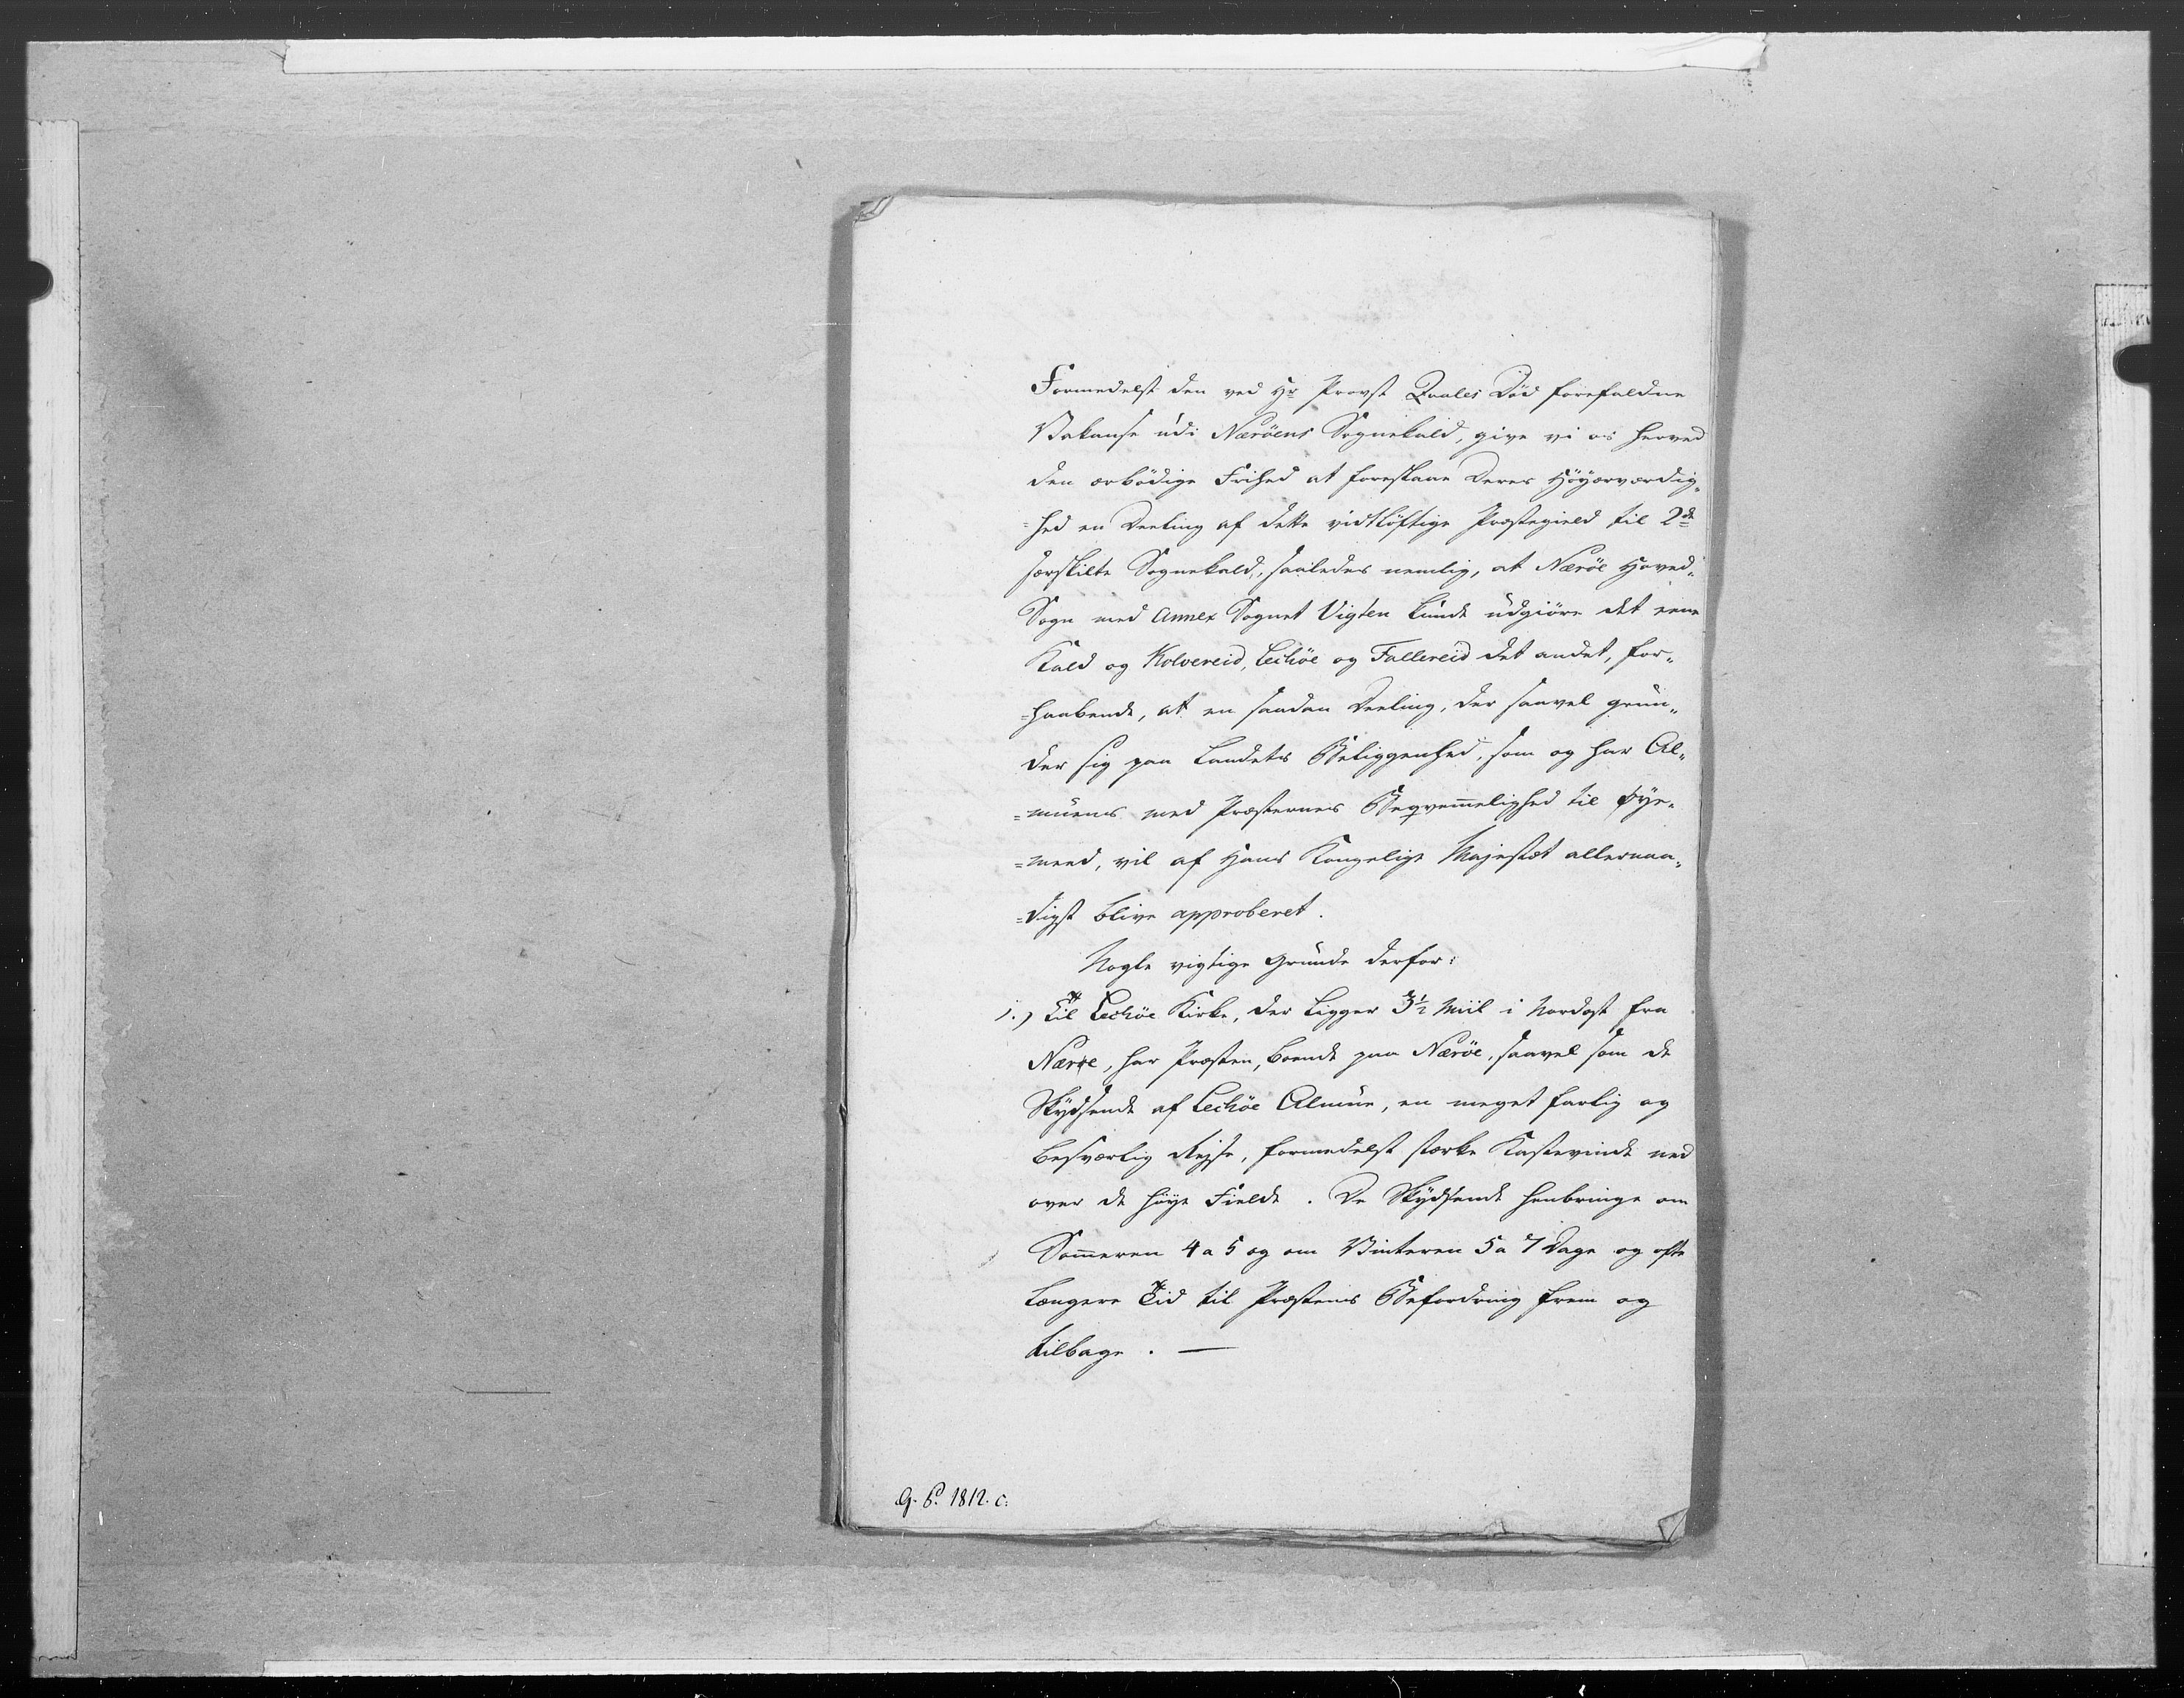 Formedelst den ved Hr Provst Qvales Død forefaldne
Vakanse udi Næröens Sognekald, give vi os herved
den ærbödige Frihed at foreslaae Deres Höyærværdig„
=hed en Deeling af dette vidtlöftige Præstegield til 2de
særskilte Sognekald, saaledes nemlig, at Næröe Hoved„
Sogn med Annex Sognet Vigten kunde udgiöre det eene
Kald og Kolvereid, Lechöe og Follereid det andet, for„
=haabende, at en saadan Deeling, der saavel grun„
der sig paa Landets Beliggenhed, som og har Al„
=muens med Præsternes Beqvemmelighed til Øye„
=meed, vil af Hans Kongelige Majestæt allernaa„
=digst blive approberet.
Nogle vigtige Grunde derfor:
1.) Til Lechöe Kirke, der ligger 3½ Miil i Nordost fra
Næröe, har Præsten, boende paa Næröe, saavel som de
Skydsende af Lechöe Almue, en meget farlig og
besværlig Rejse, formedelst stærke Kastevinde ned
over de höye Fielde. De Skydsende henbringe om
Sommeren 4 a 5 og om Vinteren 5 a 7 Dage og ofte
længere Tid til Præstens Befordring frem og
tilbage. —
G. P. 1812. c: